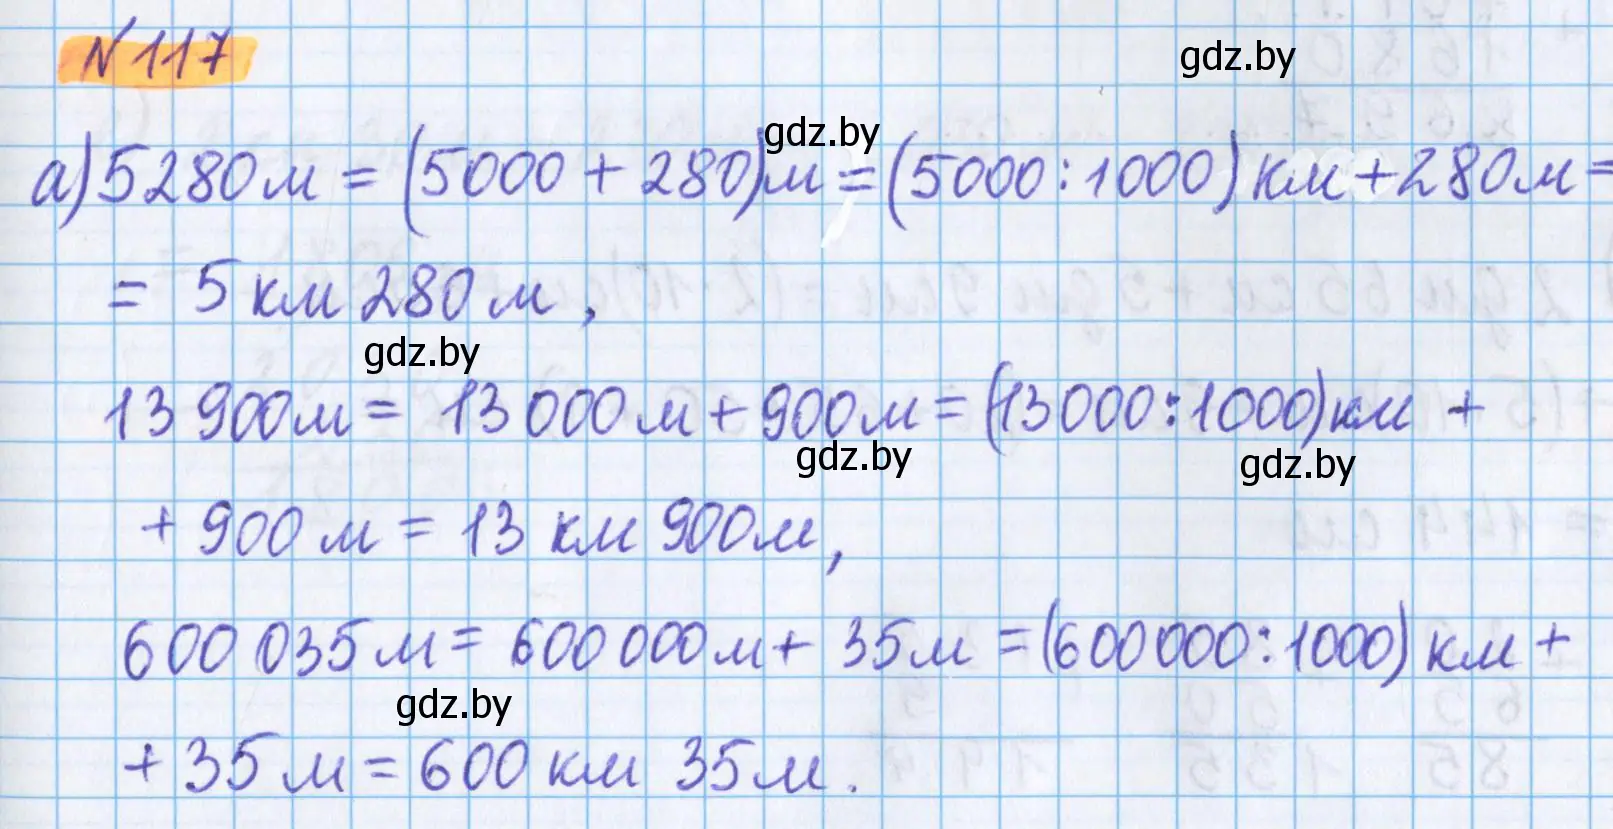 №117
gdz.by
gdz.by
а) 5280м = (5000 + 280)м = (5000 : 1000) км + 280м =
= 5 км 280 м,
gdz.by
13 900м = 13 000м + 900м = (13000 : 1000) км +
gdz.by
gdz.by
+ 900 м = 13 км 900м,
600 035 м = 600 000м + 35м = (600 000 : 1000) км +
gdz.by
+ 35 м = 600 км 35м.